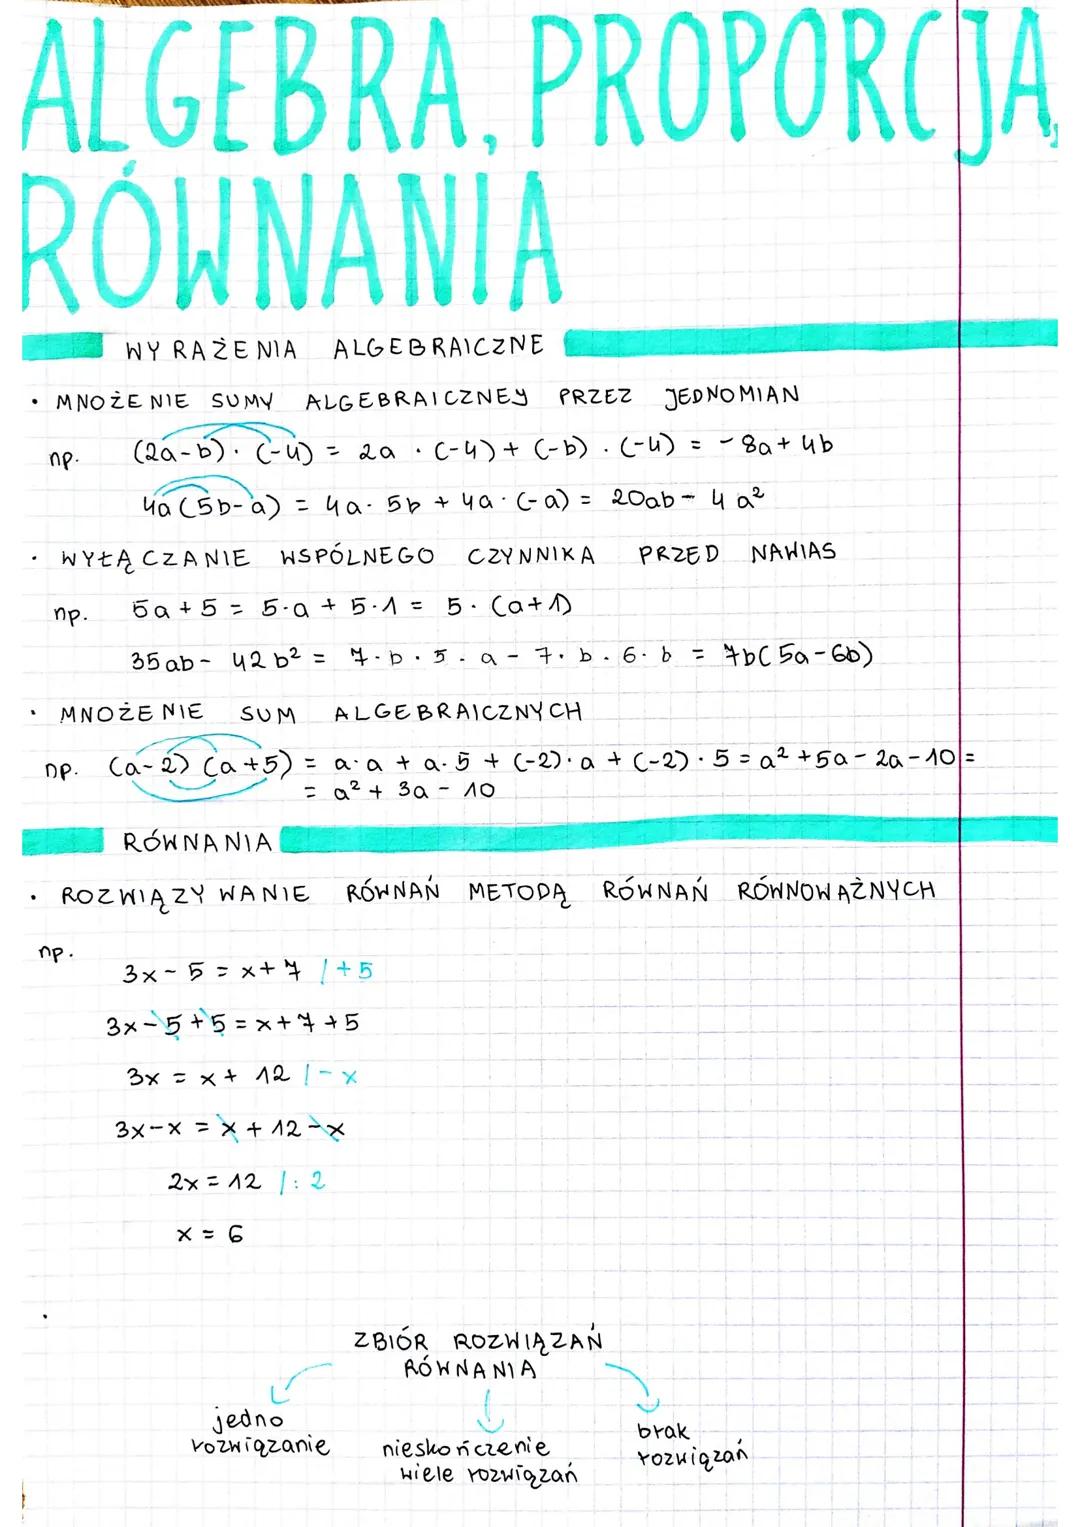 ALGEBRA, PROPORCJA,
RÓWNANIA
WYRAŻENIA ALGEBRAICZNE
• MNOŻENIE SUMY ALGEBRAICZNEJ PRZEZ JEDNOMIAN
np. (2a-b)·(-4) = 2a·(-4)+(-b)·(-4) = -8a+4b
4a(5b-a) = 4a·5b+4a·(-a) = 20ab-4a²
• WYŁĄCZANIE WSPÓLNEGO CZYNNIKA PRZED NAWIAS
np. 5a+5 = 5·a+5·1 = 5·(a+1)
35ab-42b² = 7·b·5·a-7·b·6·b = 7b(5a-6b)
• MNOŻENIE SUM ALGEBRAICZNYCH
np. (a-2)(a+5) = a·a+a·5+(-2)·a+(-2)·5 = a²+5a-2a-10 =
= a²+3a-10
RÓWNANIA
• ROZWIĄZYWANIE RÓWNAŃ METODĄ RÓWNAŃ RÓWNOWAŻNYCH
np.
3x-5 = x+7 /+5
3x-5+5 = x+7+5
3x = x+12 /-x
3x-x = x+12-x
2x = 12 /:2
x = 6
•
ZBIÓR ROZWIĄZAŃ
RÓWNANIA
jedno
rozwiązanie
nieskończenie
wiele rozwiązań
brak
rozwiązań